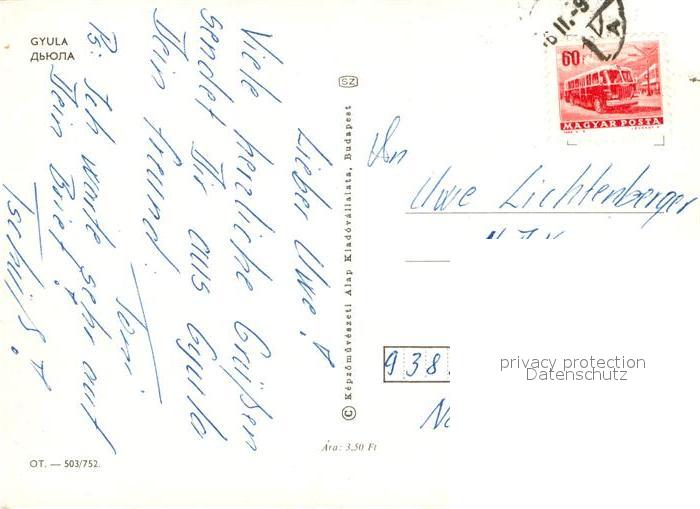 GYULA
ДЬЮЛА
Lieber Uwe!
Viele herzliche Grüßen
sendet Dir aus Gyula
Dein freund
Toni
Ps: Ich warte sehr auf
Dein Brief!
Tschüß!
OT. — 503/752.
SZ
© Képzőművészeti Alap Kiadóvállalata, Budapest
Ára: 3,50 Ft
60f
MAGYAR POSTA
An
Uwe Lichtenberger
938
privacy protection
Datenschutz